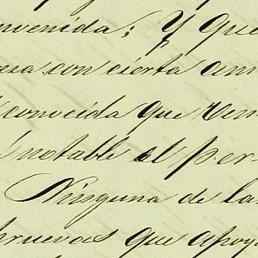 nvenida; Y que
esa con cierta am
conocida que rem
notable el per-
Ninguna de la
pruevas que apoy